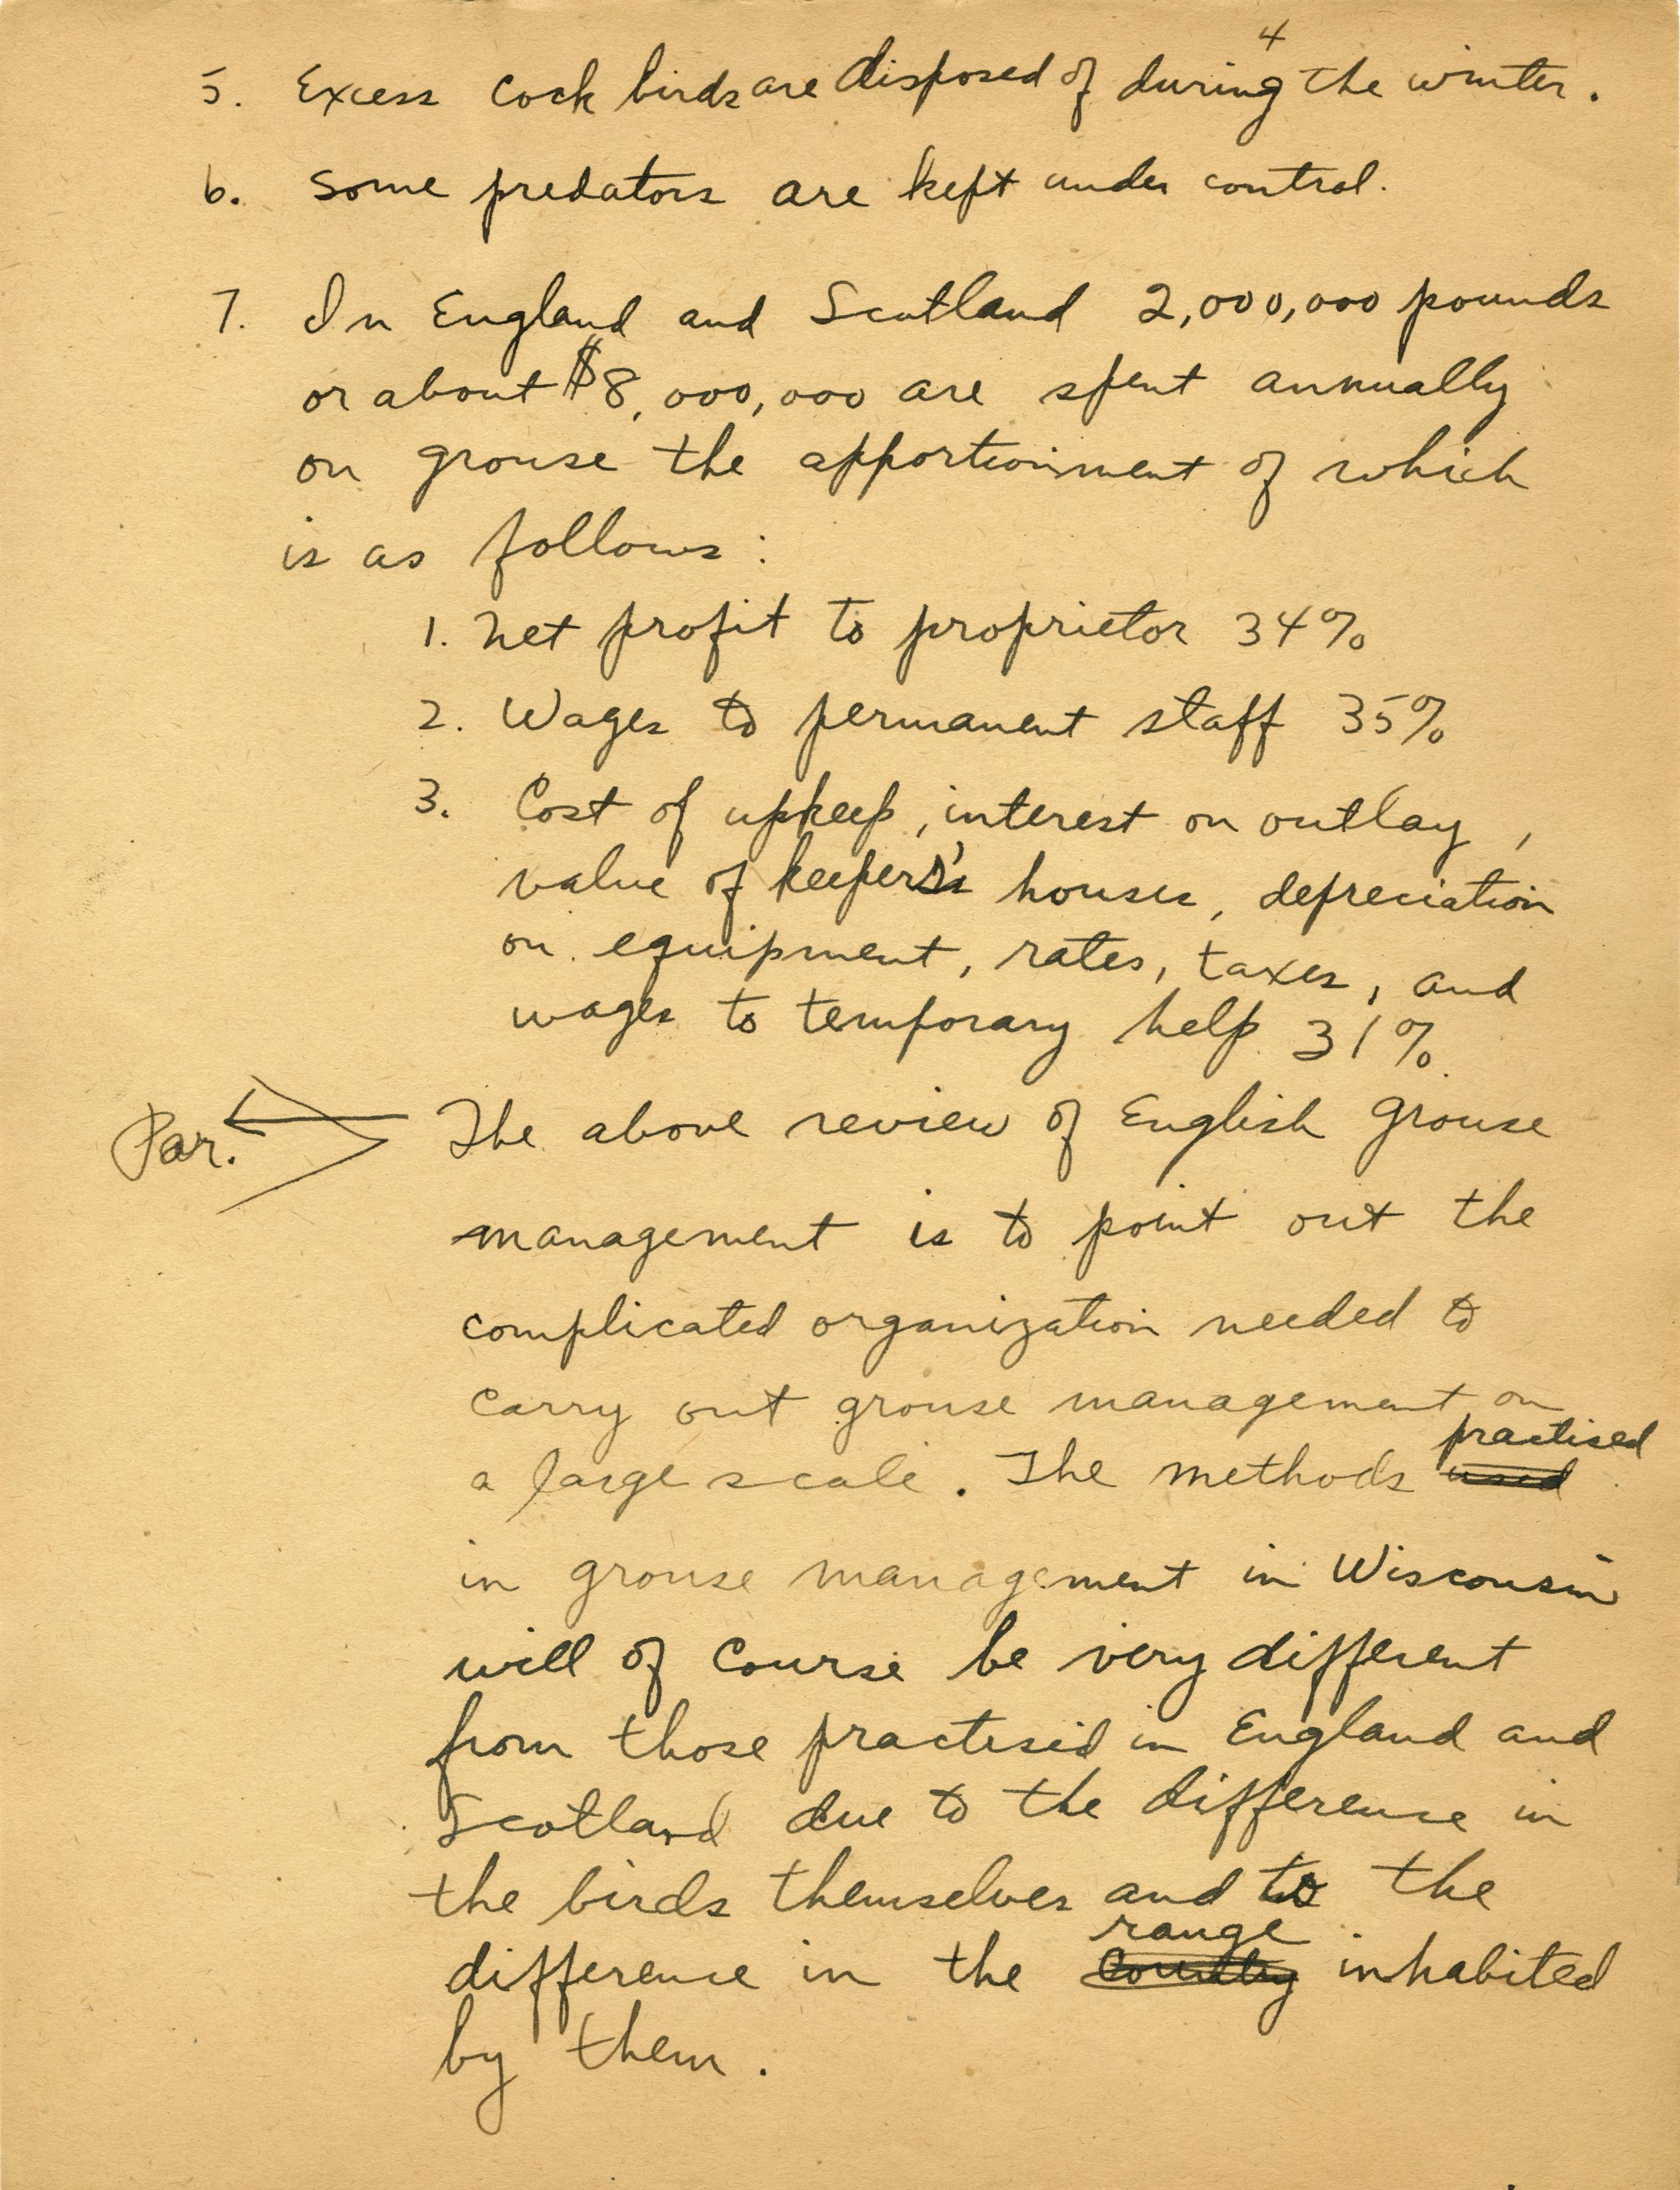 4
5. Excess cock birds are disposed of during the winter.
6. Some predators are kept under control.
7. In England and Scotland 2,000,000 pounds
or about $8,000,000 are spent annually
on grouse the apportionment of which
is as follows:
1. Net profit to proprietor 34%
2. Wages to permanent staff 35%
3. Cost of upkeep, interest on outlay,
value of keepers' houses, depreciation
on equipment, rates, taxes, and
wages to temporary help 31%
Par. The above review of English grouse
management is to point out the
complicated organization needed to
carry out grouse management on
practised
a large scale. The methods used
in grouse management in Wisconsin
will of course be very different
from those practised in England and
Scotland due to the difference in
the birds themselves and to the
range
difference in the country inhabited
by them.